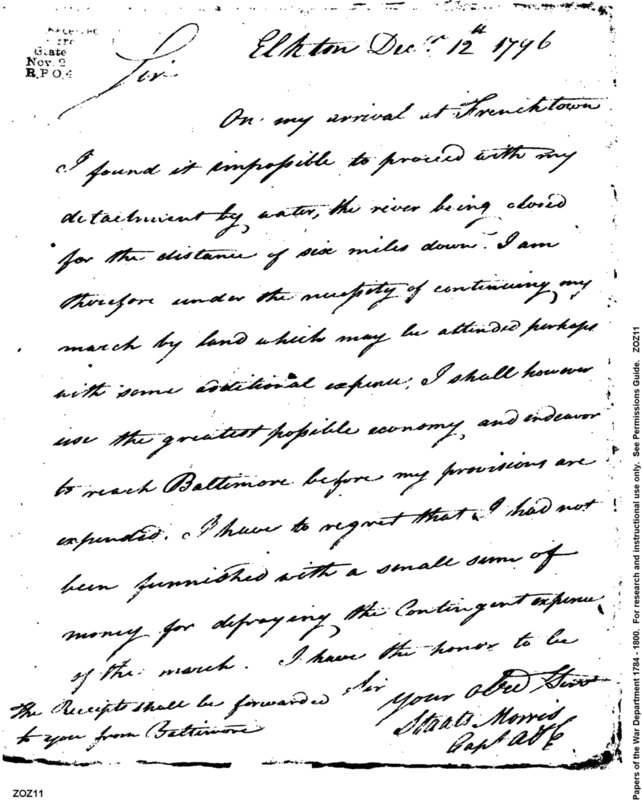 State
Nov. 2
R.P.O.4
Elkton Decr. 12th 1796
Sir
On my arrival at Frenchtown
I found it impossible to proceed with my
detachment by water, the river being closed
for the distance of six miles down. I am
therefore under the necessity of continuing my
march by land which may be attended perhaps
with some additional expence. I shall however
use the greatest possible economy, and endeavor
to reach Baltimore before my provisions are
expended. I have to regret that I had not
been furnished with a small sum of
money for defraying the Contingent expence
of the march. I have the honor to be
Sir your Obed Servt
Staats Morris
Capt A&E
The Receipts shall be forwarded
to you from Baltimore
ZOZ11
Papers of the War Department 1784 - 1800. For research and instructional use only. See Permissions Guide. ZOZ11